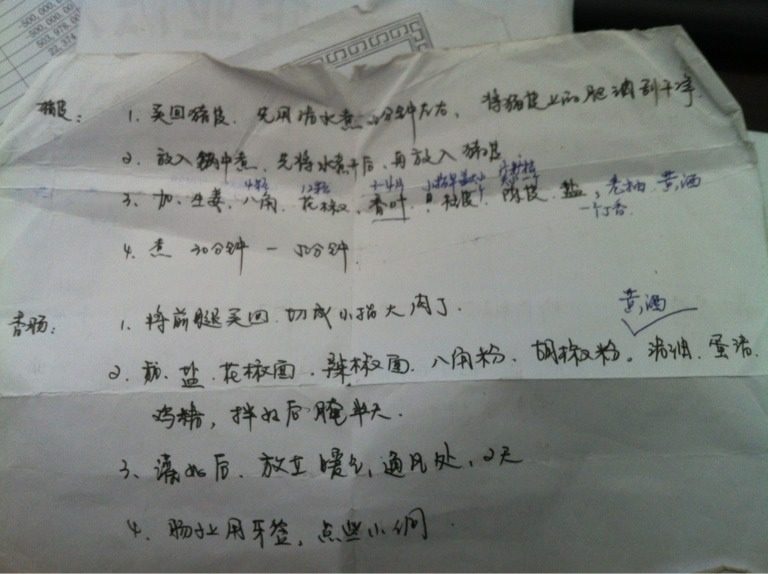 500,000.0
22,374
猪皮: 1. 买回猪皮. 先用清水煮 分钟左右, 将猪皮上的肥油刮干净.
2. 放入锅中煮, 先将水煮开后, 再放入猪皮
4粒 12粒 3-4片
3. 加. 生姜, 八角. 花椒, 香叶, 桂皮, 陈皮. 盐, 老抽. 黄酒
一个丁香.
4. 煮 30分钟 — 50分钟
香肠: 1. 将前腿买回. 切成小指大肉丁. 黄酒
2. 盐. 花椒面. 辣椒面. 八角粉. 胡椒粉. 蛋清.
鸡精, 拌好后腌半天.
3. 灌好后. 放在暖气, 通风处, 2天
4. 肠上用牙签, 点些小洞.